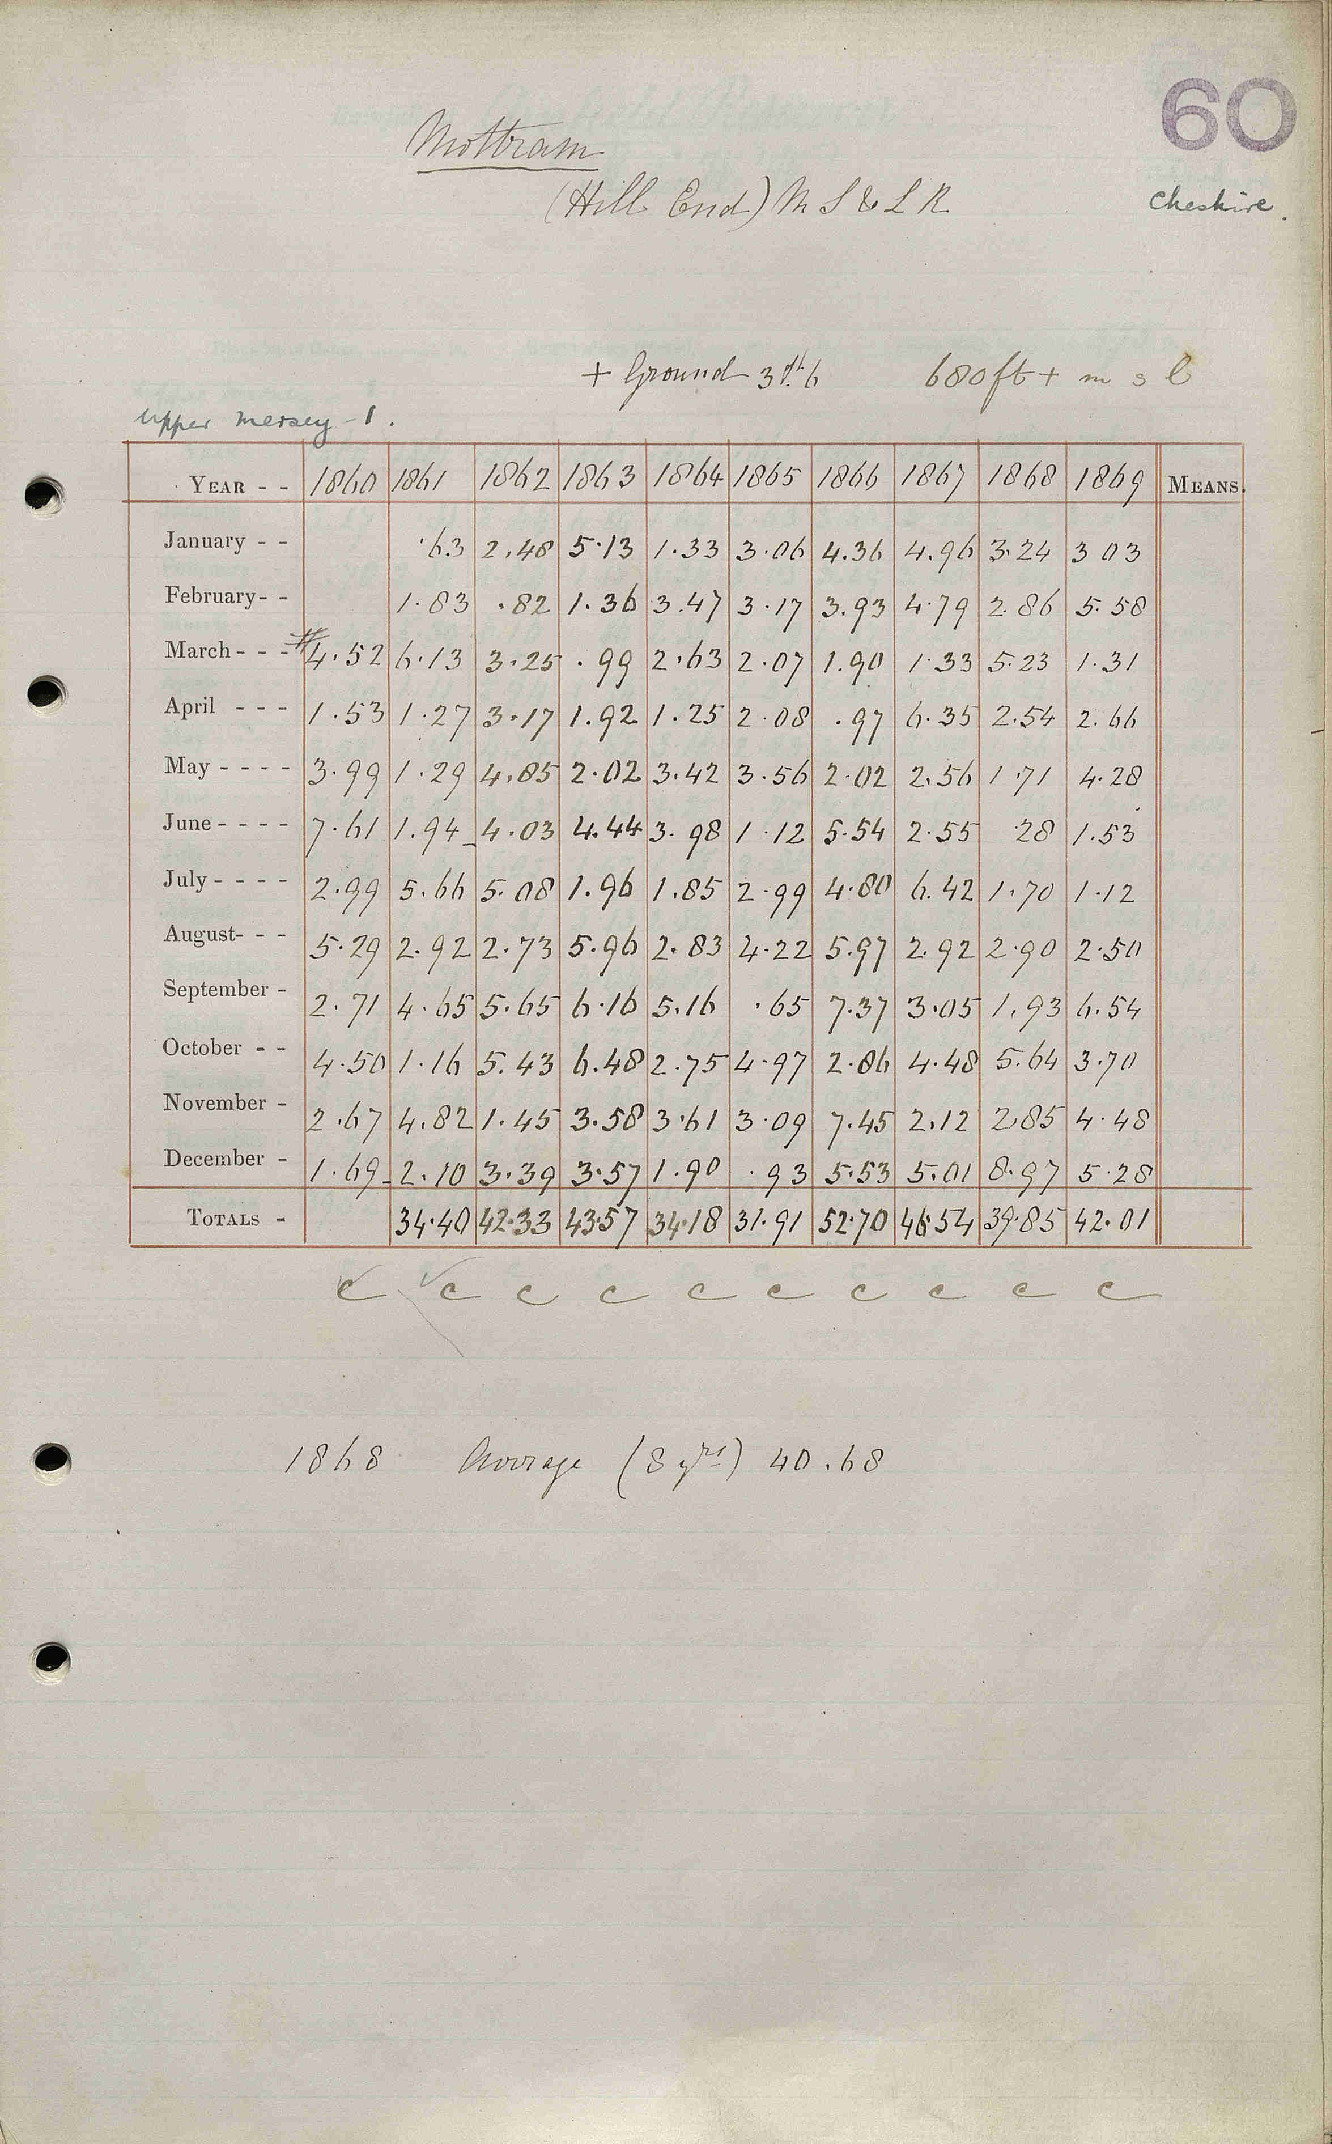 60
Mottram
(Hill End) M S & L R
Cheshire.
+ Ground 3ft. 6 680 ft + m s l
Upper Mersey - 1.
YEAR - - 1860 1861 1862 1863 1864 1865 1866 1867 1868 1869 MEANS.
January - - ·63 2.48 5.13 1.33 3.06 4.36 4.96 3.24 3 03
February - - 1.83 .82 1.36 3.47 3.17 3.93 4.79 2.86 5.58
March - - - #4.52 6.13 3.25 .99 2.63 2.07 1.90 1.33 5.23 1.31
April - - - 1.53 1.27 3.17 1.92 1.25 2.08 .97 6.35 2.54 2.66
May - - - - 3.99 1.29 4.85 2.02 3.42 3.56 2.02 2.56 1.71 4.28
June - - - - 7.61 1.94 4.03 4.44 3.98 1.12 5.54 2.55 .28 1.53
July - - - - 2.99 5.66 5.08 1.96 1.85 2.99 4.80 6.42 1.70 1.12
August - - - 5.29 2.92 2.73 5.96 2.83 4.22 5.97 2.92 2.90 2.50
September - 2.71 4.65 5.65 6.16 5.16 .65 7.37 3.05 1.93 6.54
October - - 4.50 1.16 5.43 6.48 2.75 4.97 2.86 4.48 5.64 3.70
November - 2.67 4.82 1.45 3.58 3.61 3.09 7.45 2.12 2.85 4.48
December - 1.69 2.10 3.39 3.57 1.90 .93 5.53 5.01 8.97 5.28
TOTALS - 34.40 42.33 43.57 34.18 31.91 52.70 46.54 39.85 42.01
c c c c c c c c c c
1868 Average (8 yrs) 40.68